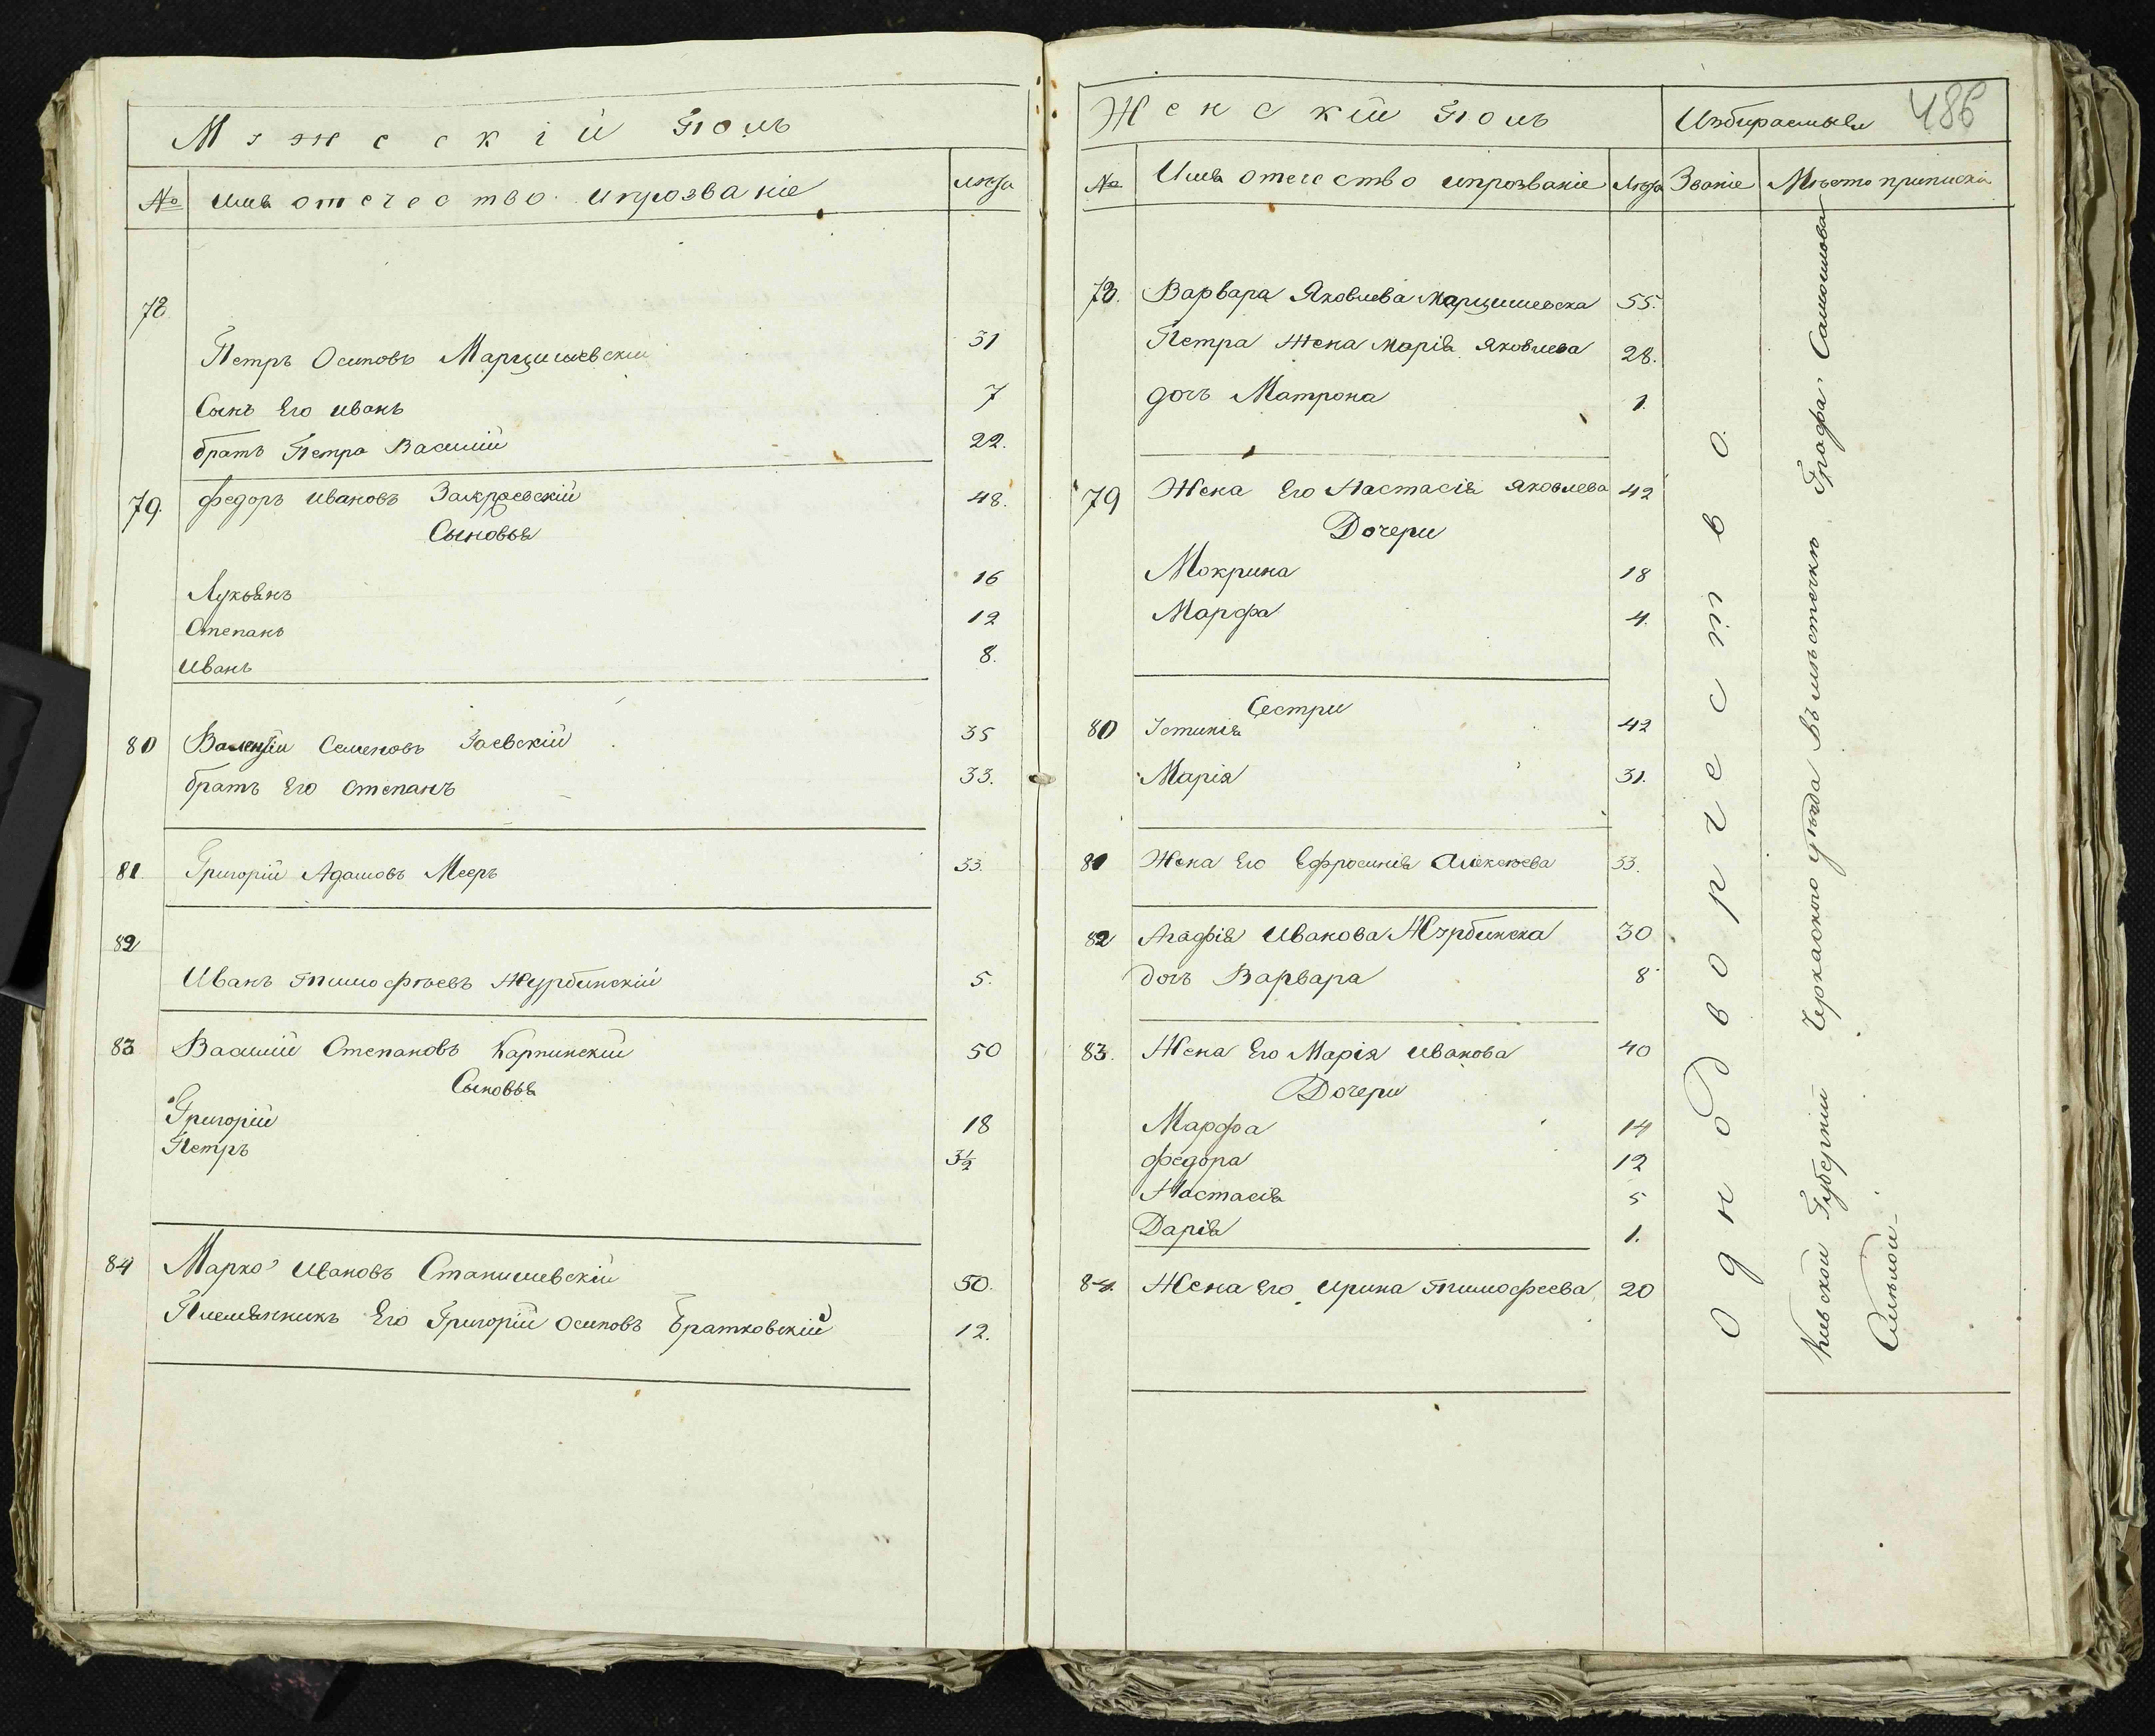 Мужескій Полъ
№ Имя отечество и прозваніе Лѣта
78
Петръ Осиповъ Марцишевскій 31
Сынъ Его Иванъ 7
братъ Петра Василій 22.
79. Федоръ Ивановъ Закржевскій 48.
Сыновья
Лукьянъ 16
Степанъ 12
Иванъ 8.
80 Семеновъ Гаевскій 35
братъ Его Степанъ 33.
81. Григорій Адамовъ Мееръ 33.
82
Иванъ Тимофѣевъ Журбинскій 5.
83 Василій Степановъ Карпинскій 50
Сыновья
Григорій 18
Петръ 3½
84 Марко Ивановъ Станишевскій 50.
Племянникъ Его Григорій Осиповъ Братковскій 12.
Женскій Полъ Избираемыи 486
№ Имя отечество и прозваніе Лѣта Званіе Мѣсто приписки
78. Варвара Яковлева Марцишевска 55.
Петра Жена Марія Яковлева 28.
дочь Матрона 1.
79 Жена Его Настасія Яковлева 42
Дочери
Мокрина 18
Марфа 4.
Сестри
80 Істинія 42
Марія 31.
81 Жена Его Ефросинія Алексѣева 33.
82 Агафія Иванова Журбинска 30
дочь Варвара 8
83. Жена Его Марія Иванова 40
Дочери
Марфа 14
Федора 12
Настасія 5
Дарія 1.
84. Жена Его Ирина Тимофеева 20
Однодворчество.
Кіевской Губерніи Черкаского уѣзда Въ мѣстечкѣ Графа Самойлова
Смѣлой